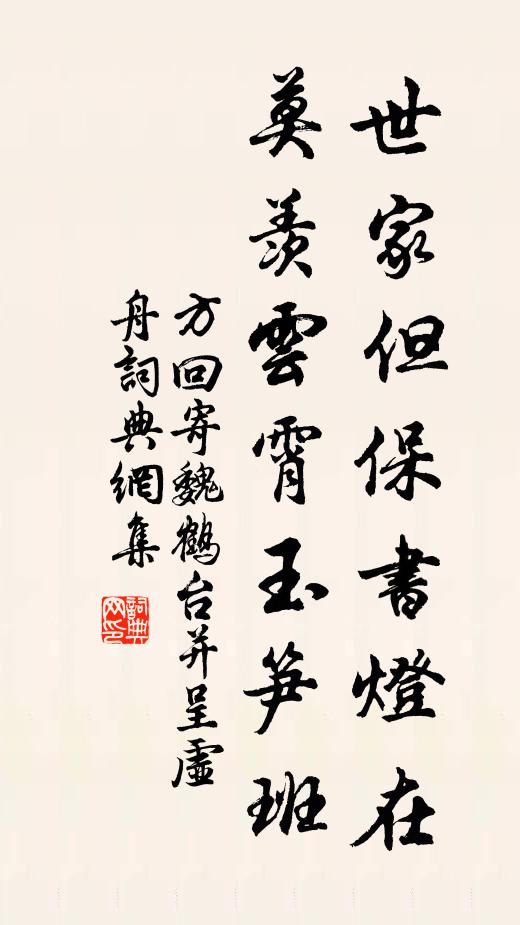 世家但保書燈在
莫羨雲霄玉笋班
方回寄魏鶴台并呈虛
舟詞典網集
詞典
网印